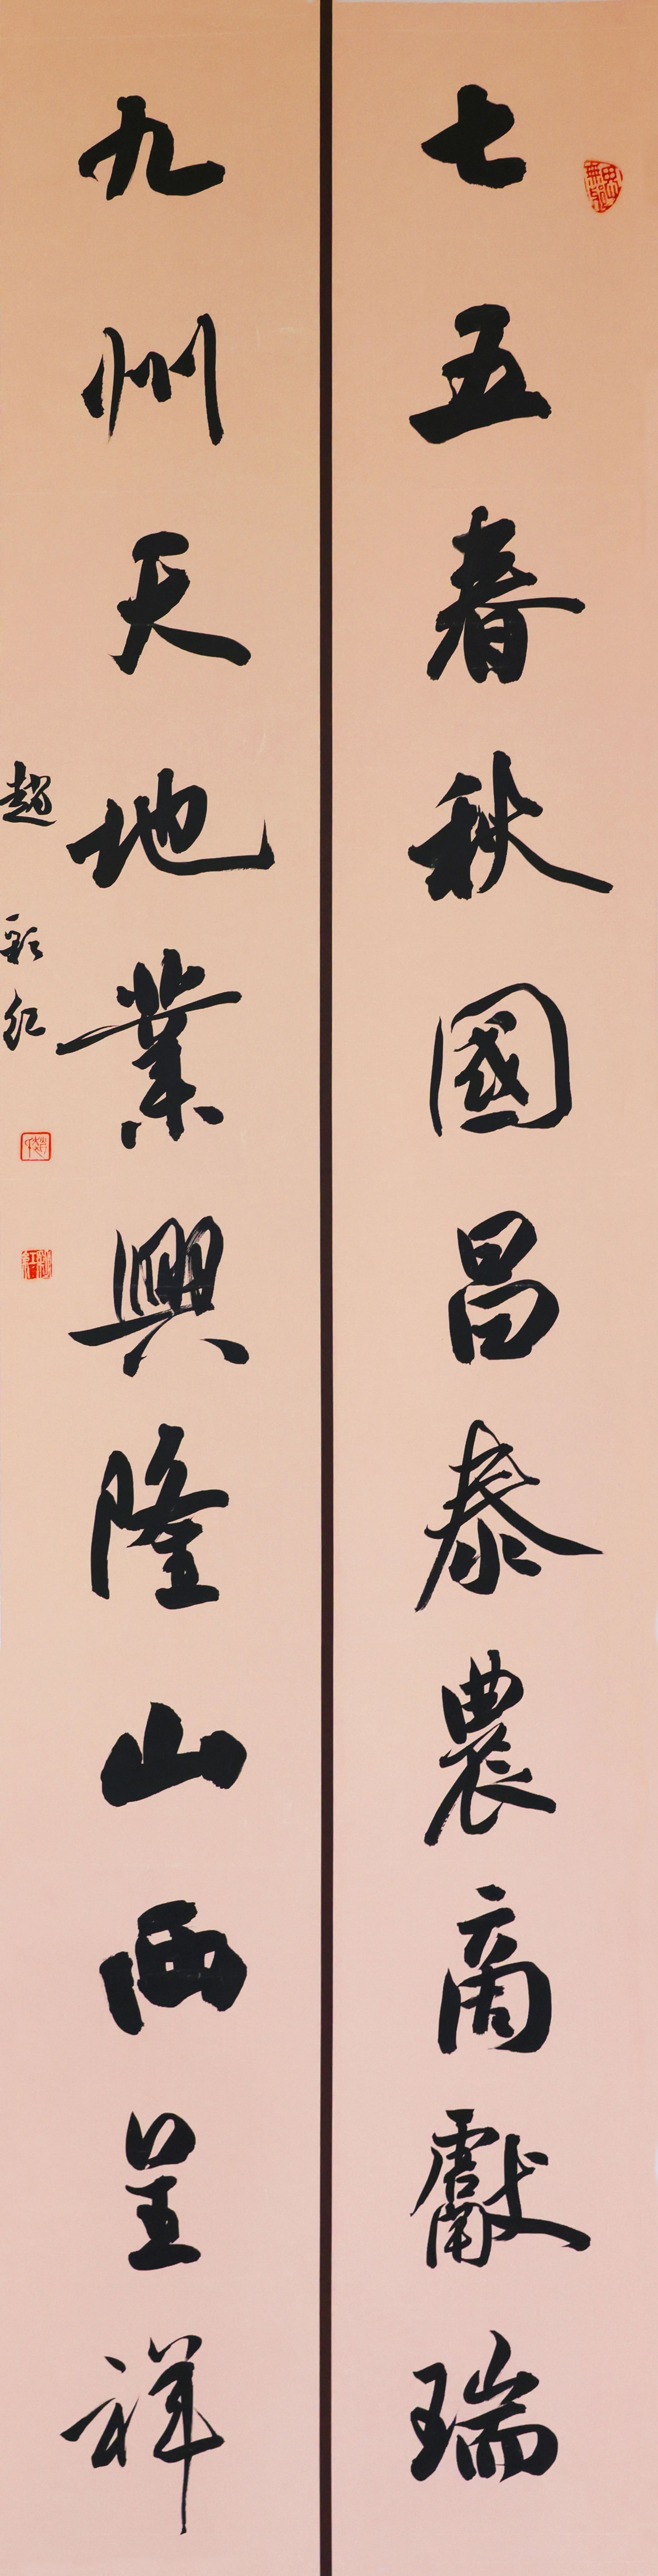 七五春秋國昌泰農商獻瑞
九州天地業興隆山西呈祥
趙彩紅